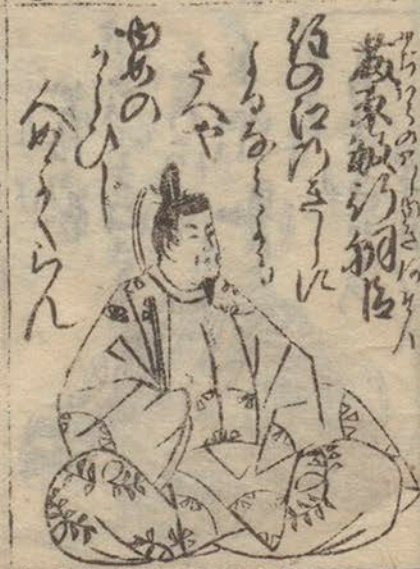 ふぢはらのとしゆきあそん
藤原敏行朝臣
住の江のきしに
よるなみよる
さへや
夢の
かよひぢ
人めよくらん